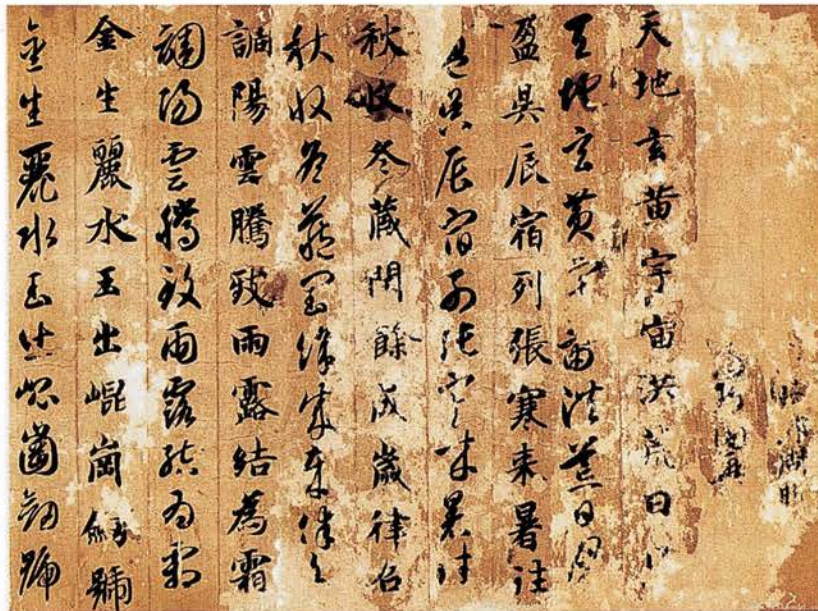 天地玄黄宇宙洪荒日月
天地玄黄宇宙洪荒日月
盈昃辰宿列張寒来暑往
盈昃辰宿列張寒来暑往
秋收冬蔵閏餘成歲律召
秋收冬藏閏餘成歲律召
調陽雲騰致雨露結為霜
調陽雲騰致雨露結為霜
金生麗水玉出崐崗劍號
金生麗水玉出崐崗劍號